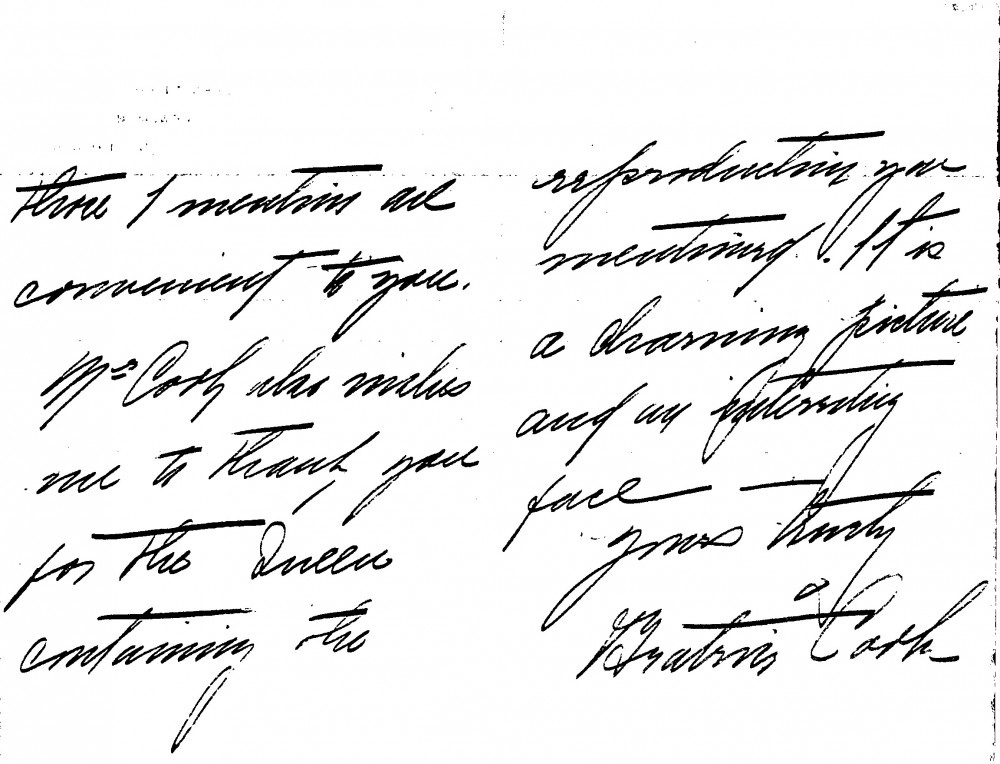 those I mention are
convenient to you.
Mr Cook also wishes
me to thank you
for the Queen
containing the
reproduction you
mentioned. It is
a charming picture
and an interesting
face —
yours truly
Beatrice Cook